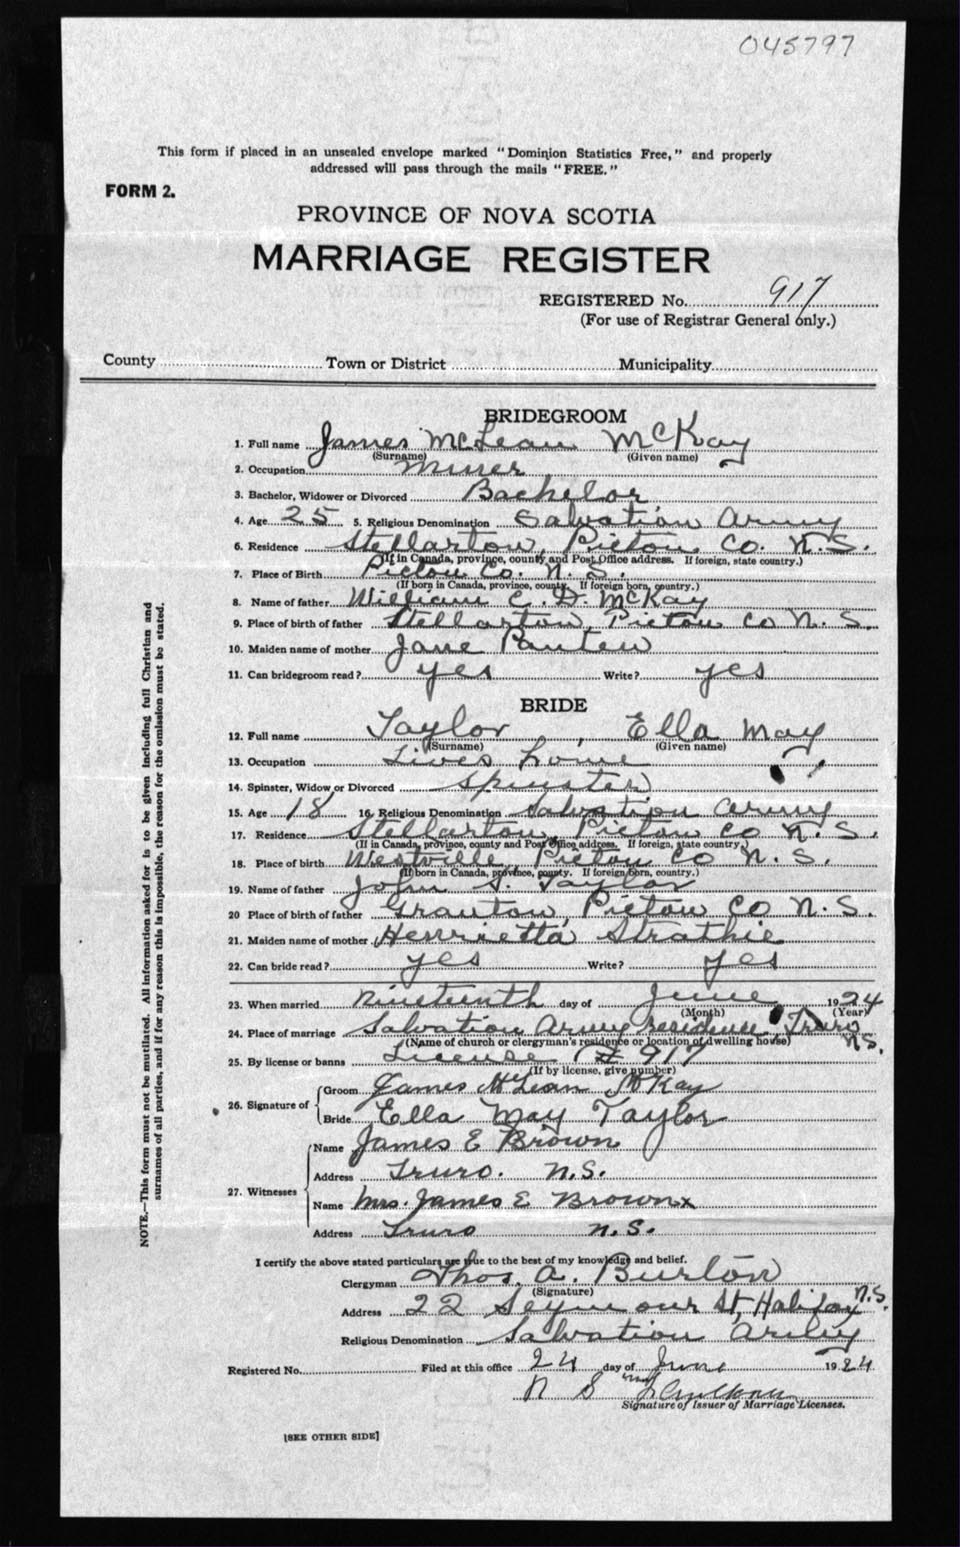 045797
This form if placed in an unsealed envelope marked "Dominion Statistics Free," and properly
addressed will pass through the mails "FREE."
FORM 2.
PROVINCE OF NOVA SCOTIA
MARRIAGE REGISTER
REGISTERED No. 917
(For use of Registrar General only.)
County Town or District Municipality
BRIDEGROOM
1. Full name James McLean McKay
(Surname) (Given name)
2. Occupation Miner
3. Bachelor, Widower or Divorced Bachelor
4. Age 25 5. Religious Denomination Salvation Army
6. Residence Stellarton, Pictou Co. N.S.
(If in Canada, province, county and Post Office address. If foreign, state country.)
7. Place of Birth Pictou Co. N. S
(If born in Canada, province, county. If foreign born, country.)
8. Name of father William C. D. McKay
9. Place of birth of father Stellarton, Pictou Co N.S.
10. Maiden name of mother Jane
11. Can bridegroom read? yes Write? yes
BRIDE
12. Full name Taylor, Ella May
(Surname) (Given name)
13. Occupation Lives home
14. Spinster, Widow or Divorced Spinster
15. Age 18 16. Religious Denomination Salvation Army
17. Residence Stellarton, Pictou Co N.S.
(If in Canada, province, county and Post Office address. If foreign, state country.)
18. Place of birth Westville, Pictou Co N.S.
(If born in Canada, province, county. If foreign born, country.)
19. Name of father John S. Taylor
20 Place of birth of father Granton, Pictou Co N.S.
21. Maiden name of mother Henrietta Strathie
22. Can bride read? yes Write? yes
23. When married nineteenth day of June 1924
(Month) (Year)
24. Place of marriage Salvation Army residence, Truro N.S.
(Name of church or clergyman's residence or location of dwelling house)
25. By license or banns License # 917
(If by license, give number)
26. Signature of Groom James McLean McKay
Bride Ella May Taylor
27. Witnesses Name James E Brown
Address Truro. N.S.
Name Mrs. James E Brown x
Address Truro N.S.
I certify the above stated particulars are true to the best of my knowledge and belief.
Clergyman Thos. A. Burton
(Signature)
Address 22 Seymour St, Halifax N.S.
Religious Denomination Salvation Army
Registered No. Filed at this office 24 day of June 1924
N S
Signature of Issuer of Marriage Licenses.
[SEE OTHER SIDE]
NOTE.—This form must not be mutilated. All information asked for is to be given including full Christian and
surnames of all parties, and if for any reason this is impossible, the reason for the omission must be stated.